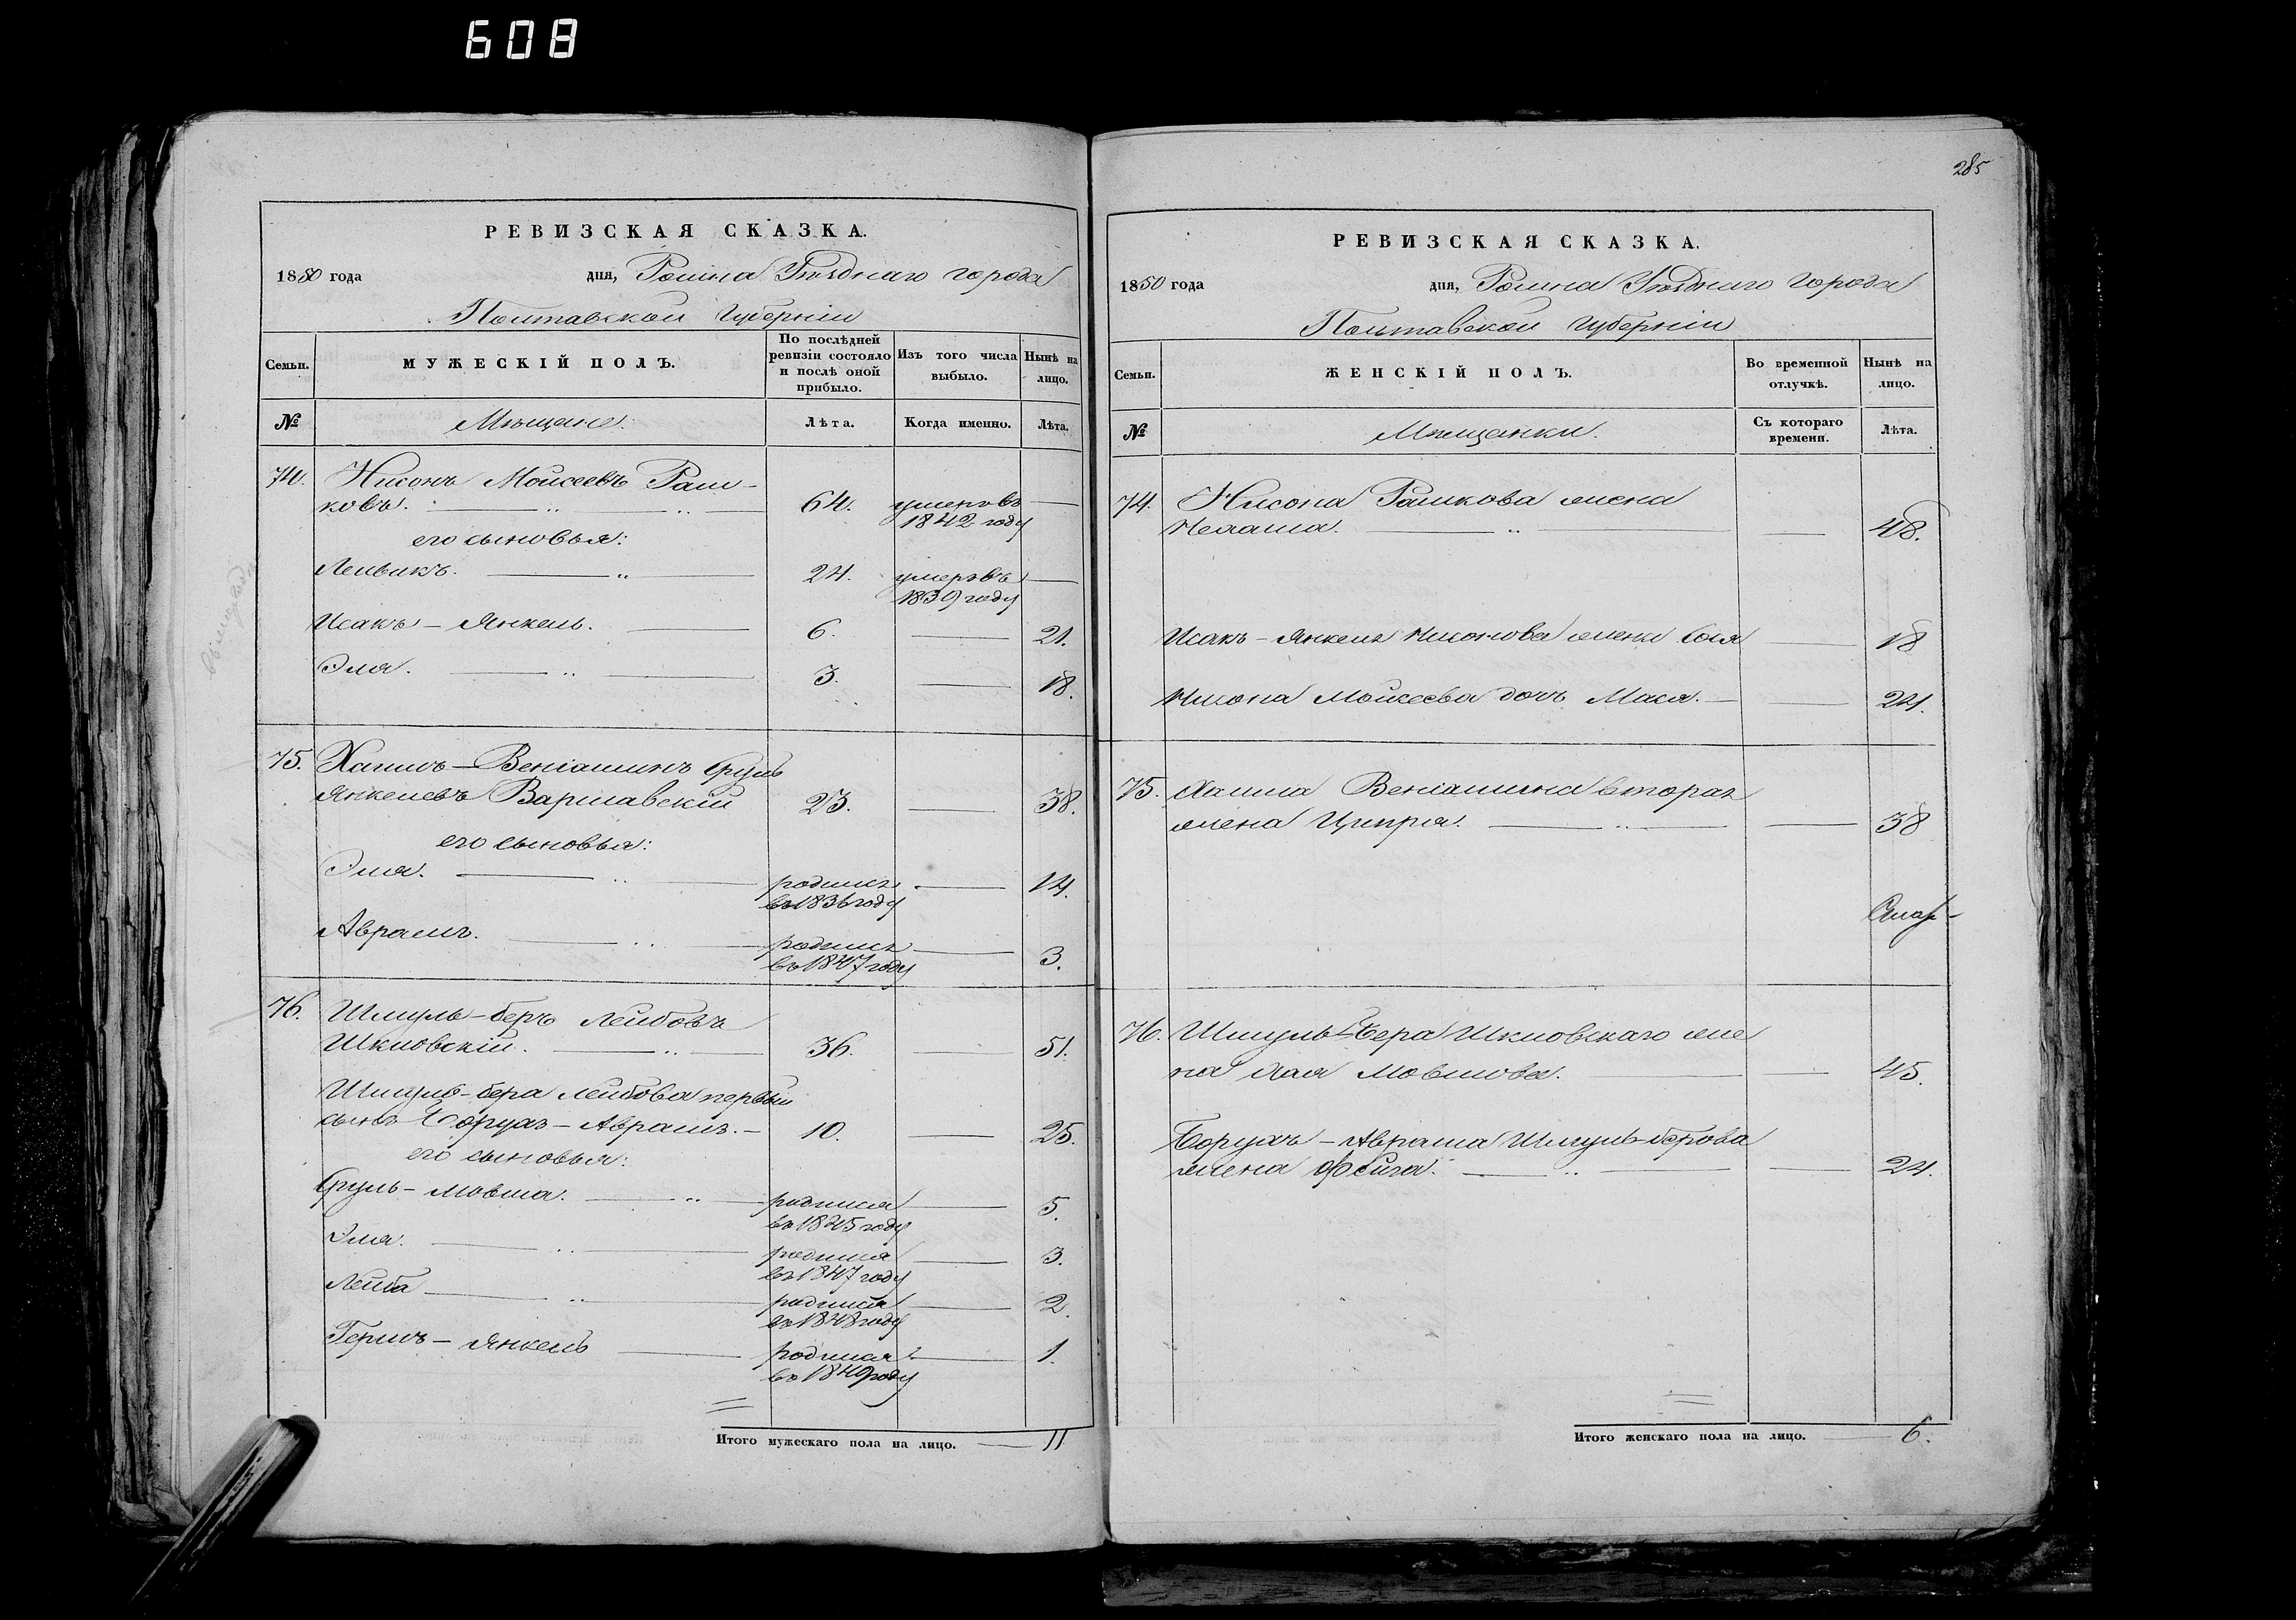 608
РЕВИЗСКАЯ СКАЗКА.
1850 года дня, Ромна Уѣзднаго города
Полтавской Губерніи
Семьи.
МУЖЕСКІЙ ПОЛЪ.
По послѣдней ревизіи состояло и послѣ оной прибыло.
Изъ того числа выбыло.
Нынѣ на лицо.
№
Мѣщане.
Лѣта.
Когда именно.
Лѣта.
74. Нисонъ Моисеевъ Раш-
ковъ. 64. умеръ въ
1842 году
его сыновья:
Лейвикъ. 24. умеръ въ
1839 году
Исакъ-Янкель. 6. 21.
Эля. 3. 18.
75. Хаимъ-Веніаминъ Сруль
Янкелевъ Варшавскій 23. 38.
его сыновья:
Эля. родился 14.
въ 1836 году
Аврамъ. родился 3.
въ 1847 году
76. Шмуль-беръ Лейбовъ
Шкловскій. 36. 51.
Шмуль-бера Лейбова первый
сынъ Борухъ-Аврамъ. 10. 25.
его сыновья:
Сруль-Мовша. родился 5.
въ 1845 году
Эля. родился 3.
въ 1847 году
Лейба родился 2.
въ 1848 году
Гершъ-Янкель родился 1.
въ 1849 году
Итого мужескаго пола на лицо. 11
285
РЕВИЗСКАЯ СКАЗКА.
1850 года дня, Ромна Уѣзднаго Города
Полтавской Губерніи
Семьи.
ЖЕНСКІЙ ПОЛЪ.
Во временной отлучкѣ.
Нынѣ на лицо.
№
Мѣщанки.
Съ котораго времени.
Лѣта.
74. Нисона Рашкова жена
48.
Исакъ-Янкеля Нисонова жена Сося 18
Нисона Моисеева дочь Мася. 24.
75. Хаима Веніамина вторая
жена Ципра. 38
76. Шмуль-Бера Шкловскаго же
на Хая Мовшова. 45.
Борухъ-Аврама Шмуль-берова
жена Фейга. 24.
Итого женскаго пола на лицо. 6.